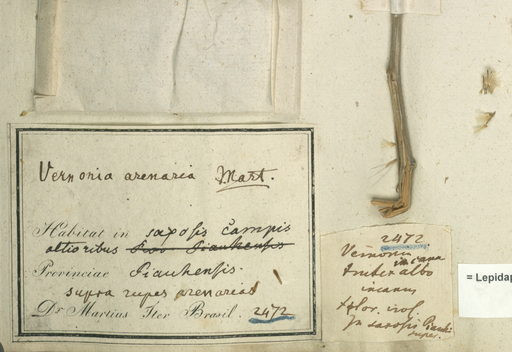 Vernonia arenaria Mart.
Habitat in saxosis Campis
altioribus
Provinciae Piauhensis.
supra rupes arenarias
Dr. Martius Iter Brasil. 2472
2472.
Vernonia
incana
frutex albo
incanus
flor. viol.
In saxosis Piauh
super.
= Lepidap